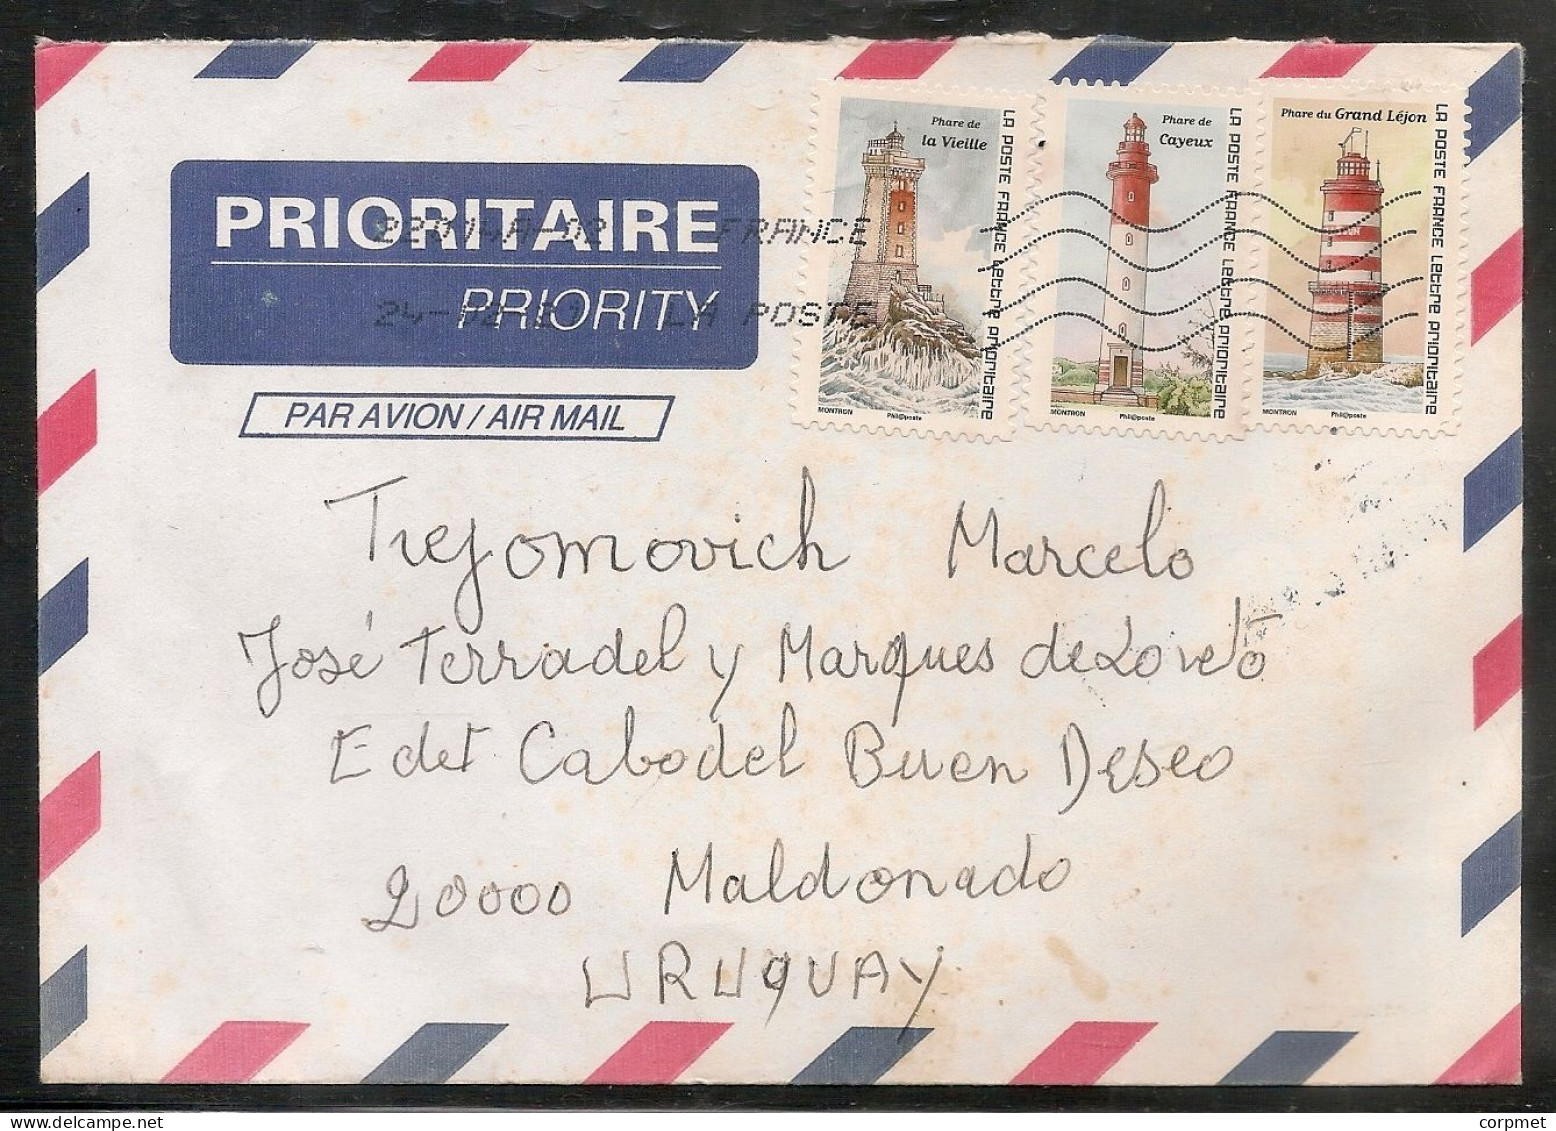 PRIORITAIRE
PRIORITY
PAR AVION / AIR MAIL
22014A-02 FRANCE
24-02-21 LA POSTE
Phare de
la Vieille
LA POSTE FRANCE Lettre Prioritaire
MONTRON Phil@poste
Phare de
Cayeux
LA POSTE FRANCE Lettre Prioritaire
MONTRON Phil@poste
Phare du Grand Léjon
LA POSTE FRANCE Lettre Prioritaire
MONTRON Phil@poste
Trejomovich Marcelo
José Terradel y Marques de Loreto
Edet Cabodel Buen Deseo
20000 Maldonado
URUQUAY
corpmet